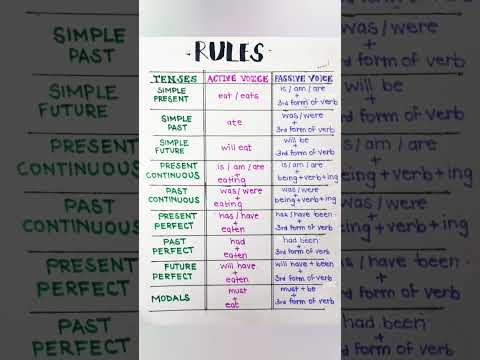 SIMPLE
PAST
SIMPLE
FUTURE
PRESENT
CONTINUOUS
PAST
CONTINUOUS
PRESENT
PERFECT
PAST
PERFECT
- RULES -
TENSES ACTIVE VOICE PASSIVE VOICE
SIMPLE
PRESENT
eat / eats
is / am / are
+
3rd form of verb
SIMPLE
PAST
ate
was/were
+
3rd form of verb
SIMPLE
FUTURE
will eat
will be
+
3rd form of verb
PRESENT
CONTINUOUS
is / am / are
+
eating
is/am/are
+
being+verb+ing
PAST
CONTINUOUS
was/were
+
eating
was/were
+
being+verb+ing
PRESENT
PERFECT
has / have
+
eaten
has/have been
+
3rd form of verb
PAST
PERFECT
had
+
eaten
had been
+
3rd form of verb
FUTURE
PERFECT
will have
+
eaten
will have + been
+
3rd form of verb
MODALS
must
+
eat
must + be
+
3rd form of verb
was/were
+
3rd form of verb
will be
+
3rd form of verb
is/am/are
+
being+verb+ing
was/were
+
being+verb+ing
is/have been
+
3rd form of verb
had been
+